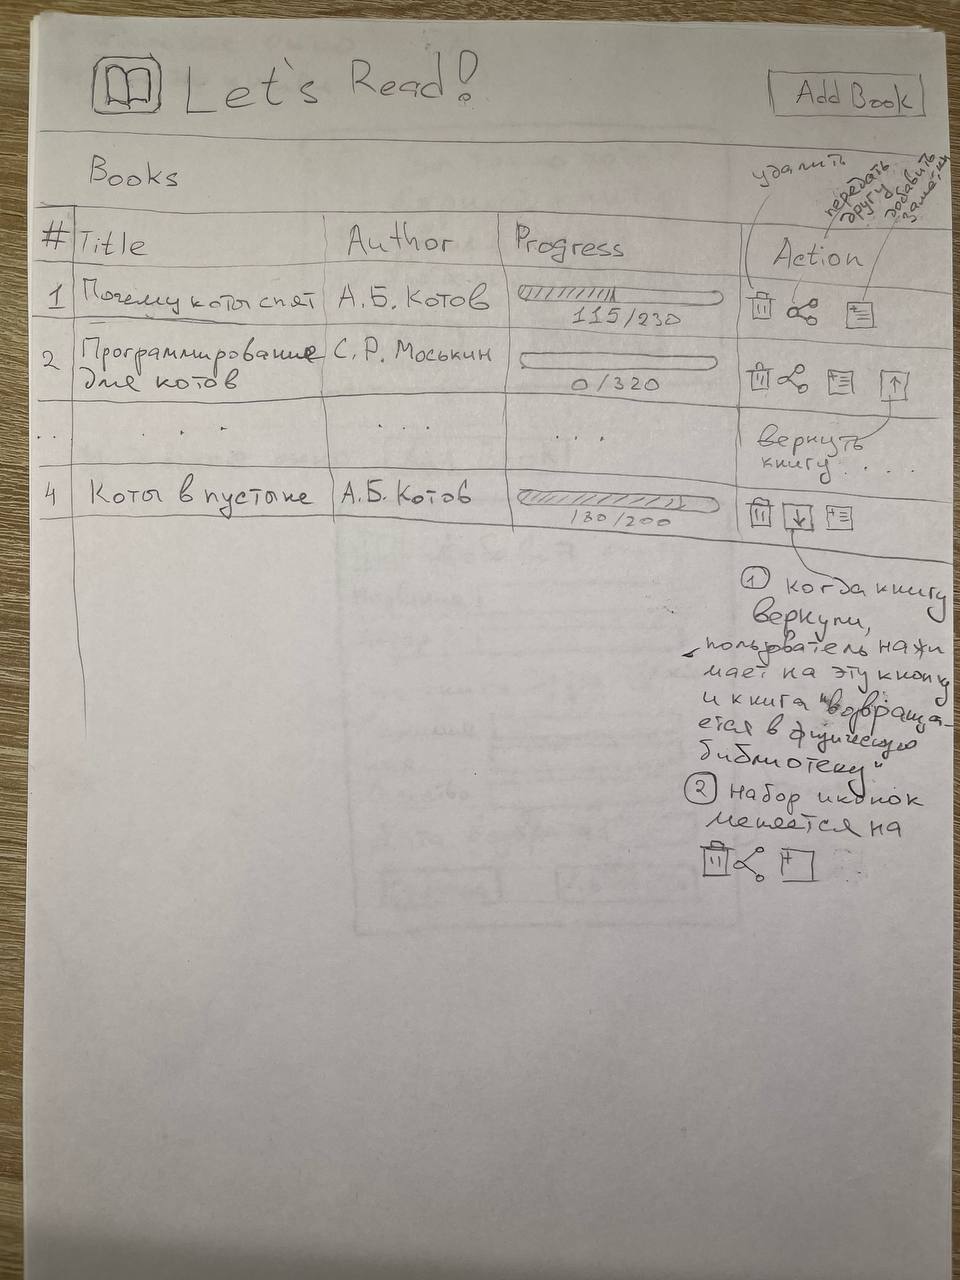 Let's Read!
Add Book
Books
удалить
передать
другу
добавить
заметки
#
Title
Author
Progress
Action
1
Почему коты спят
А.Б. Котов
115/230
2
Программирование
для котов
С.Р. Моськин
0/320
..
. . .
. . .
. . .
вернуть
книгу . . . .
4
Коты в пустыне
А.Б. Котов
130/200
1 когда книгу
вернули,
пользватель нажи
мает на эту кнопку
и книга "возвраща-
ется в физическую
библиотеку"
2 Набор иконок
меняется на